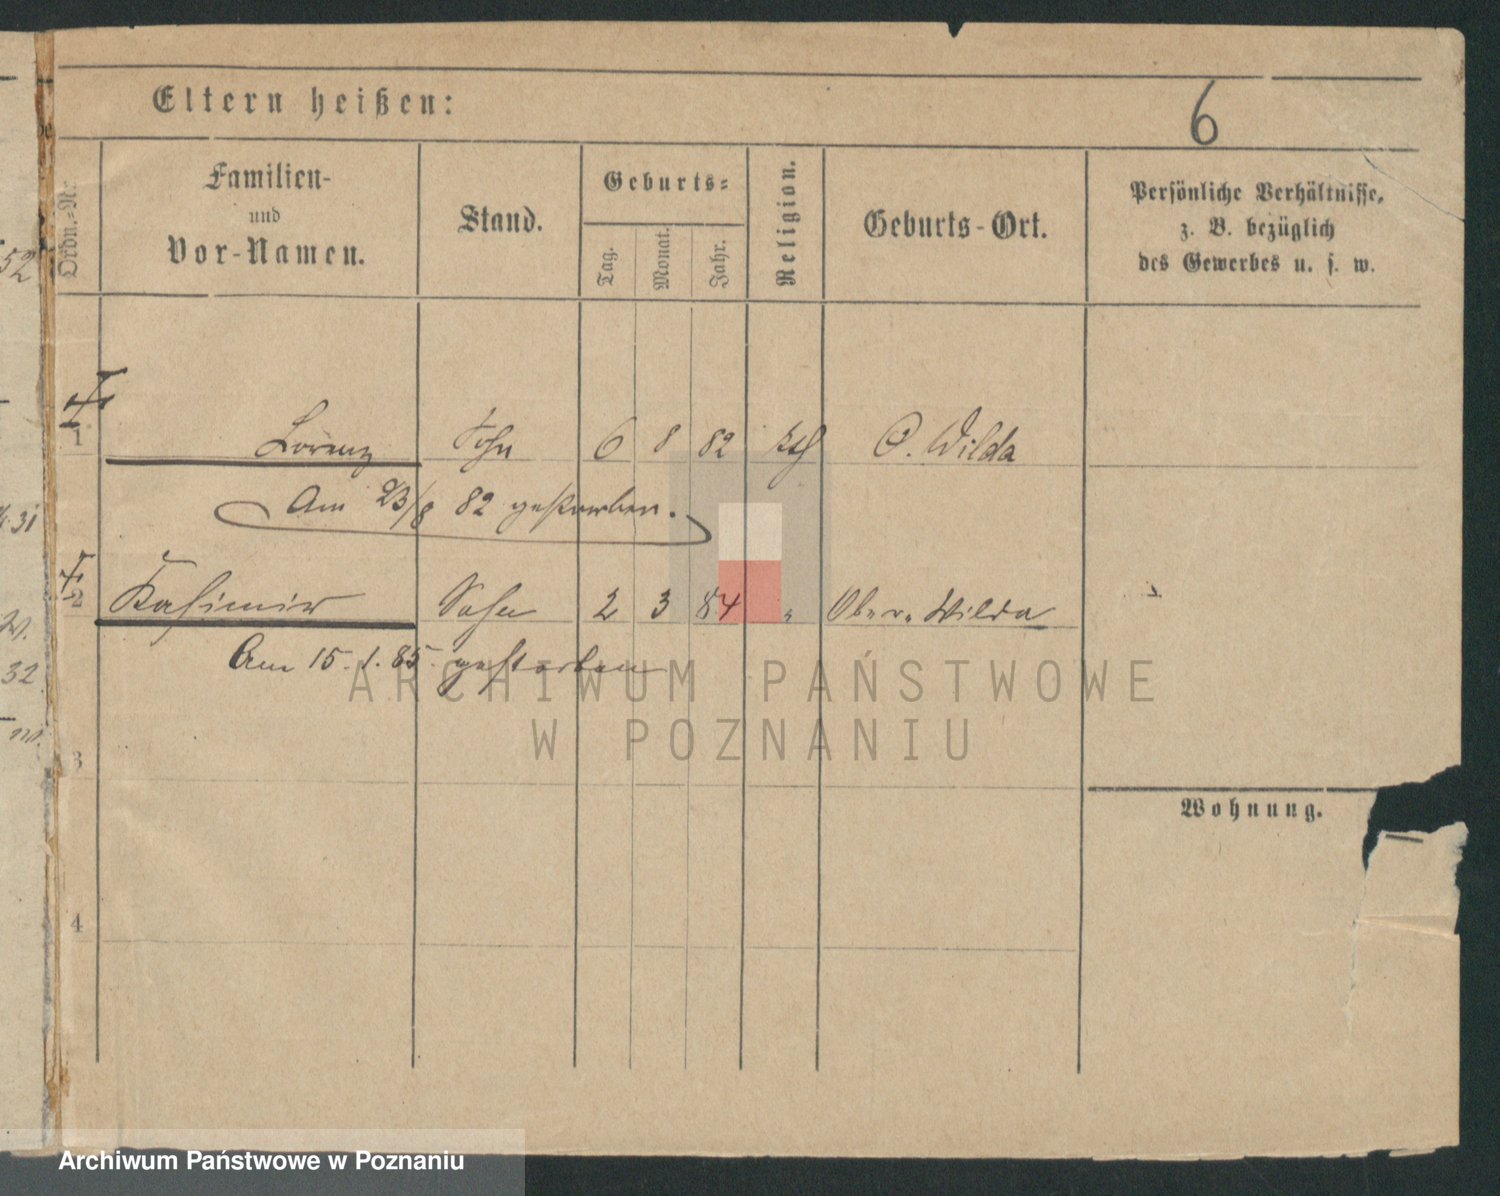 Eltern heißen:
6
Ordn.-Nr.
Familien-
und
Vor-Namen.
Stand.
Geburts-
Tag.
Monat.
Jahr.
Religion.
Geburts-Ort.
Persönliche Verhältnisse,
z. B. bezüglich
des Gewerbes u. s. w.
52
1 Lorenz Sohn 6 8 82 kth O. Wilda
Am 23/8 82 gestorben.
31
2 Kasimir Sohn 2 3 84 " Ober-Wilda
Am 15. 1. 85. gestorben
32
ARCHIWUM PAŃSTWOWE
W POZNANIU
3
Wohnung.
4
Archiwum Państwowe w Poznaniu